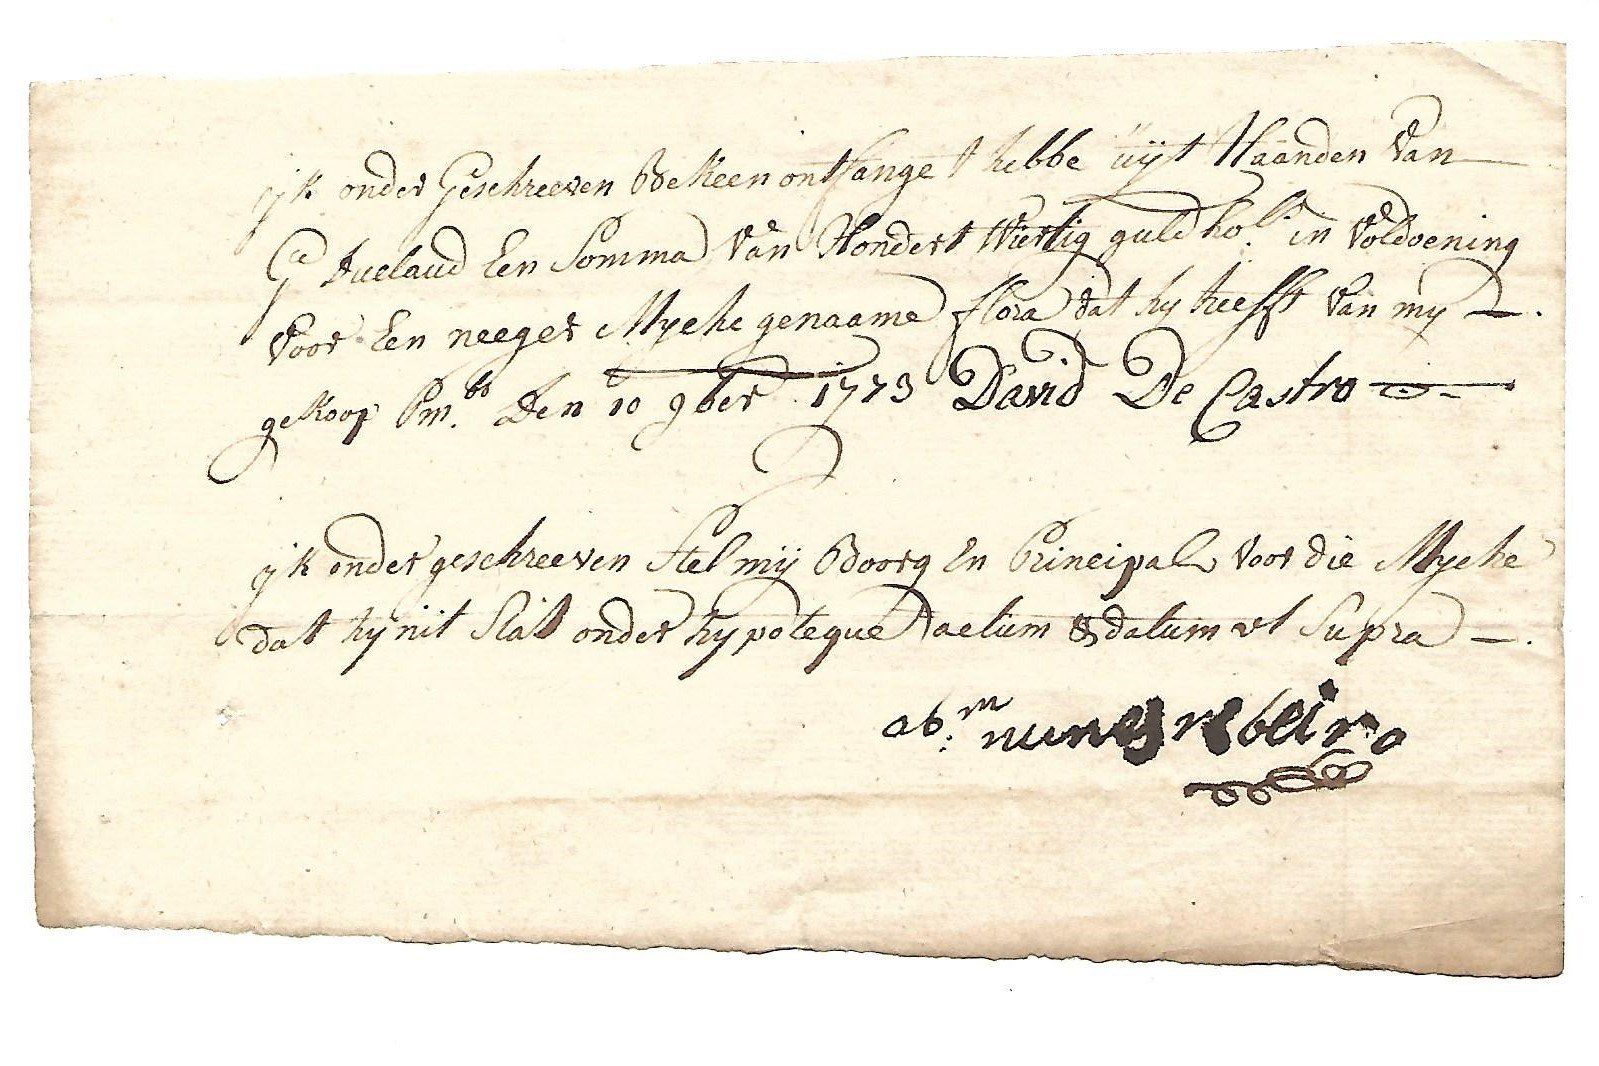 ijk onder Geschreeven Bekeen ontfange t hebbe uijt Haanden Van
Gd Duclaud Een Somma Van Hondert Viertig guld hols in Voldoening
Voor Een neeger Myehe genaame flora dat hij heefft Van mij
gekoop Pmbo Den 10 9ber 1773 David De Castro
ijk onder geschreeven Stel mij Boorg En Principal Voor die Myehe
dat hij nit Stat onder hypoteque actum & datum ut Supra
abm nunes rebeiro